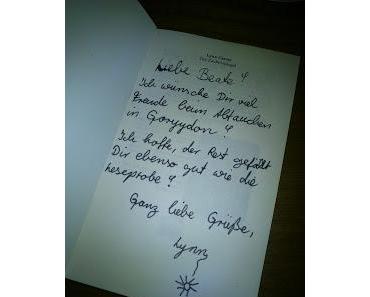 Liebe Beate!
Ich wünsche Dir viel
Freude beim Abtauchen
in Goryydon!
Ich hoffe, der Rest gefällt
Dir ebenso gut wie die
Leseprobe!
Ganz liebe Grüße,
Lynn